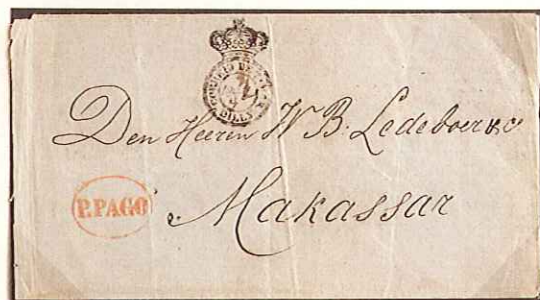 DILLY
Den Heeren W B. Ledeboer & Co
P.PAGO
Makassar